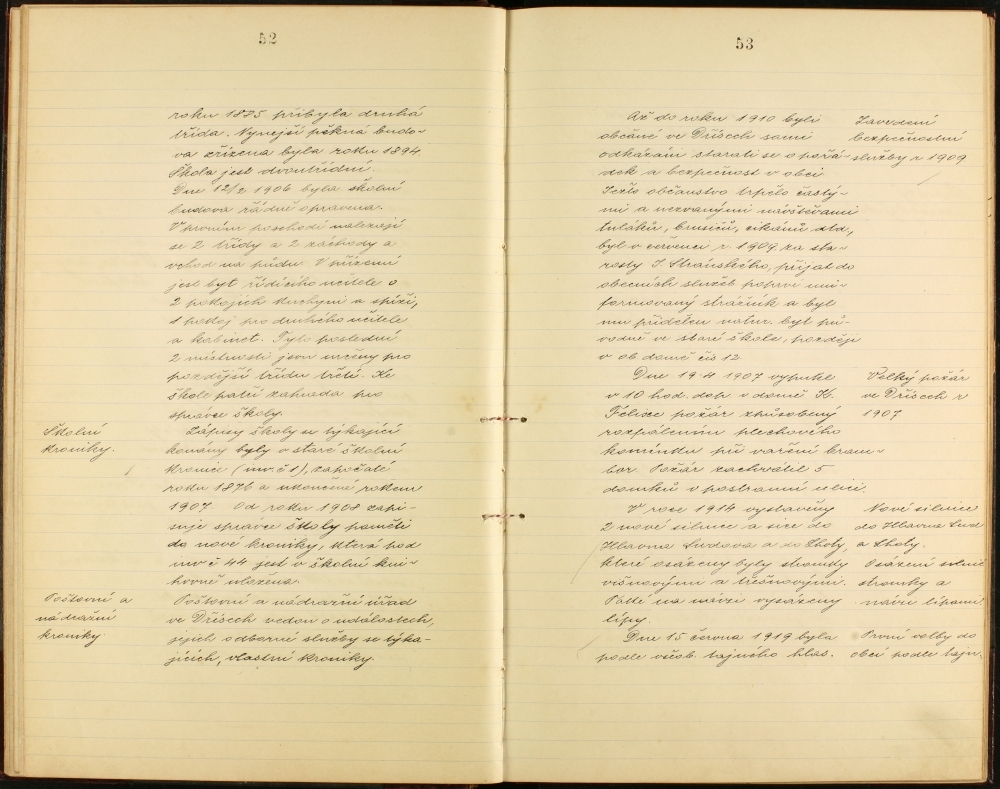 52
roku 1885 přibyla druhá
třída. Nynejší pěkná budo-
va zřízena byla roku 1894.
Škola jest dvoutřídní.
Dne 12/2 1906 byla školní
budova řádně opravena.
V prvním poschodí nalezají
se 2 třídy a 2 záchody a
vchod na půdu. V přízemí
jest byt řídícího učitele o
2 pokojích kuchyni a spíži,
1 pokoj pro druhého učitele
a kabinet. Tyto poslední
2 místnosti jsou určeny pro
pozdější třídu třetí. Ke
škole patří zahrada pro
správce školy.
Školní
kroniky.
Zápisy školy se týkající
konány byly v staré školní
kronice (inv. č 1), započaté
roku 1876 a ukončené rokem
1907. Od roku 1908 zapi-
suje správce školy paměti
do nové kroniky, která pod
inv č 44 jest v školní kni-
hovně uložena.
Poštovní a
nádražní
kroniky.
Poštovní a nádražní úřad
ve Dřísech vedou o událostech,
jejich odborné služby se týka-
jících, vlastní kroniky.
53
Až do roku 1910 byli
občané ve Dřísech sami
odkázáni starati se o pořá-
dek a bezpečnost v obci.
Ježto občanstvo trpělo častý-
mi a nezvanými návštěvami
tuláků, brusičů, cikánů atd.,
byl v červenci r. 1909 za sta-
rosty J. Stránského, přijat do
obecních služeb poprvé uni-
formovaný strážník a byl
mu přidělen natur. byt pů-
vodně ve staré škole, později
v ob domě čís 12
Zavedení
bezpečnostní
služby r 1909
Dne 19.4 1907 vypukl
v 10 hod. dop. v domě K.
Felixe požár způsobený
rozpálením plechového
komínku při vaření bram-
bor. Požár zachvátil 5
domků v postranní ulici.
Velký požár
ve Dřísech r
1907
V roce 1914 vystavěny
2 nové silnice a sice do
Hlavna Sudova a do Lhoty,
které osázeny byly stromky
višňovými a třešňovými.
Poblé na návsi vysázeny
lípy.
Nové silnice
do Hlavna Sud
a Lhoty.
Osázení silnic
stromky a
návsi lípami
Dne 15 června 1919 byla
podle všeob. tajného hlas.
První volby do
obcí podle tajn.